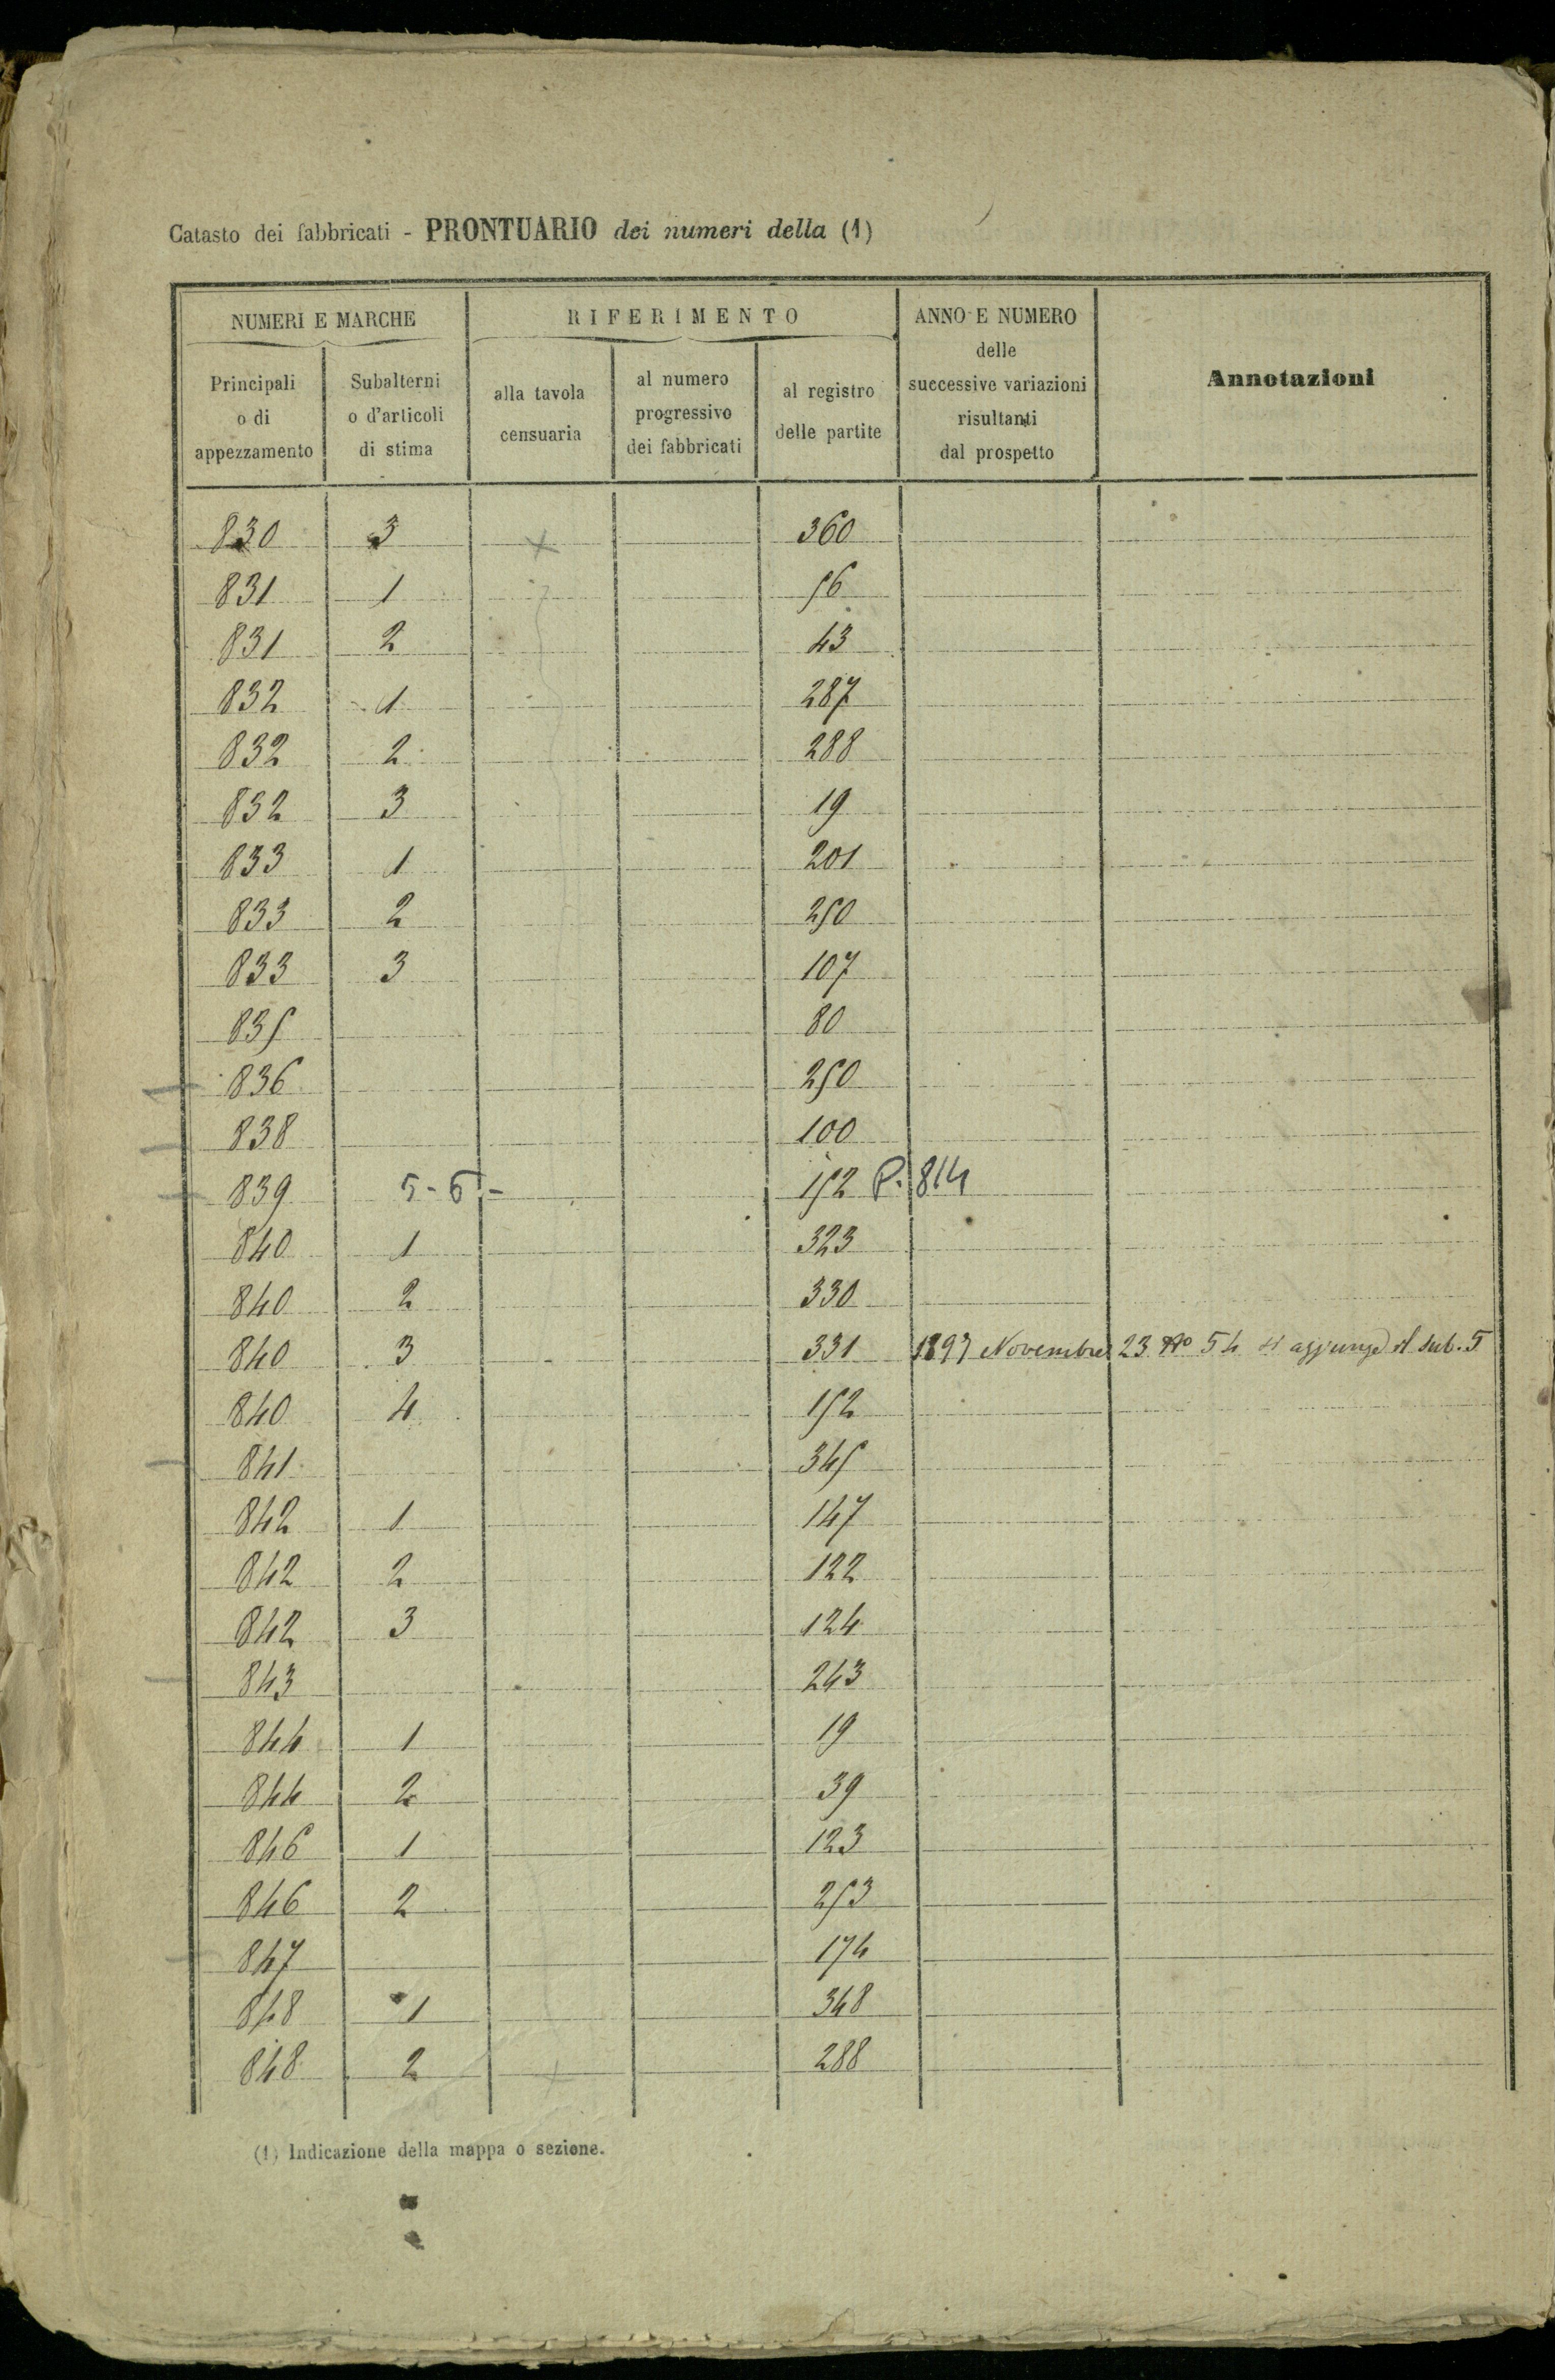 Catasto dei fabbricati - PRONTUARIO dei numeri della (1)
NUMERI E MARCHE
RIFERIMENTO
ANNO E NUMERO
delle
successive variazioni
risultanti
dal prospetto
Annotazioni
Principali
o di
appezzamento
Subalterni
o d'articoli
di stima
alla tavola
censuaria
al numero
progressivo
dei fabbricati
al registro
delle partite
830 3 360
831 1 56
831 2 43
832 1 287
832 2 288
832 3 19
833 1 201
833 2 250
833 3 107
835 80
836 250
838 100
839 5-6- 152 P. 814
840 1 323
840 2 330
840 3 331 1893 Novembre 23 No 54 si aggiunge il sub. 5
840 4 152
841 345
842 1 147
842 2 122
842 3 124
843 243
844 1 19
844 2 39
846 1 123
846 2 253
847 174
848 1 348
848 2 288
(1) Indicazione della mappa o sezione.